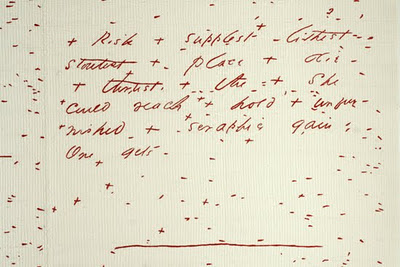 + Risk + supplest - lithest -
stoutest + place +
+ thrust. + the + She
+ could reach + hold + unfur-
+ nished + seraphic gain:
One gets -